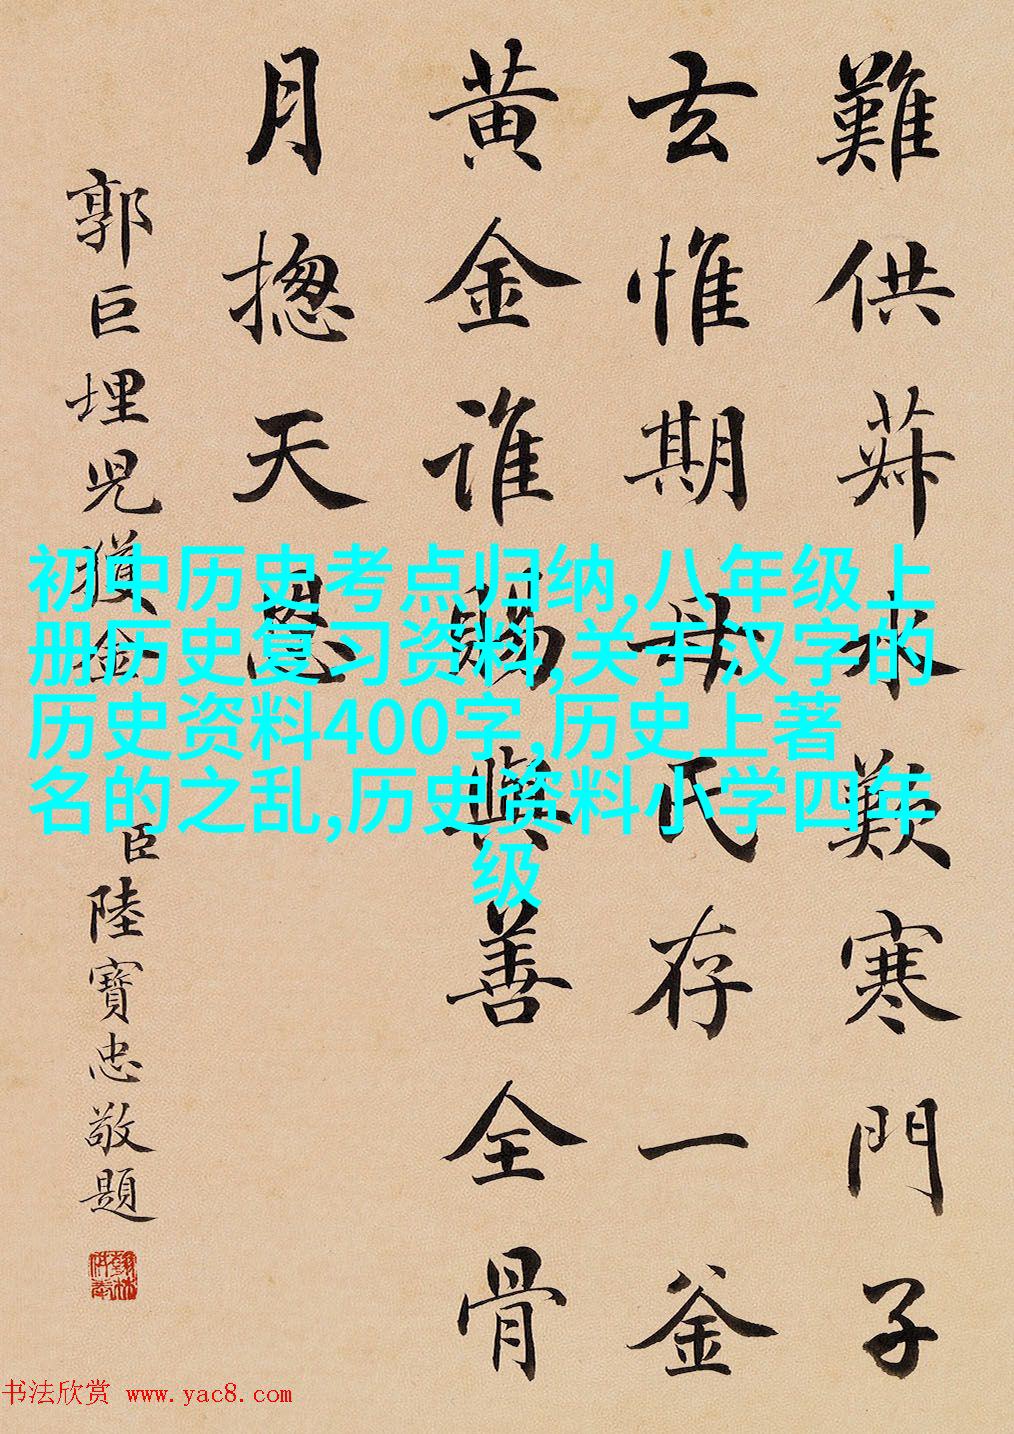 難供菽水歎寒門子
去惟期母氏存一釜
黃金誰賜與善全骨
月揔天恩
郭巨埋兒獲金
臣陸寶忠敬題
翰林供奉
初中历史考点归纳,八年级上
册历史复习资料,关于汉字的
历史资料400字,历史上著
名的之乱,历史资料小学四年
级
书法欣赏 www.yac8.com